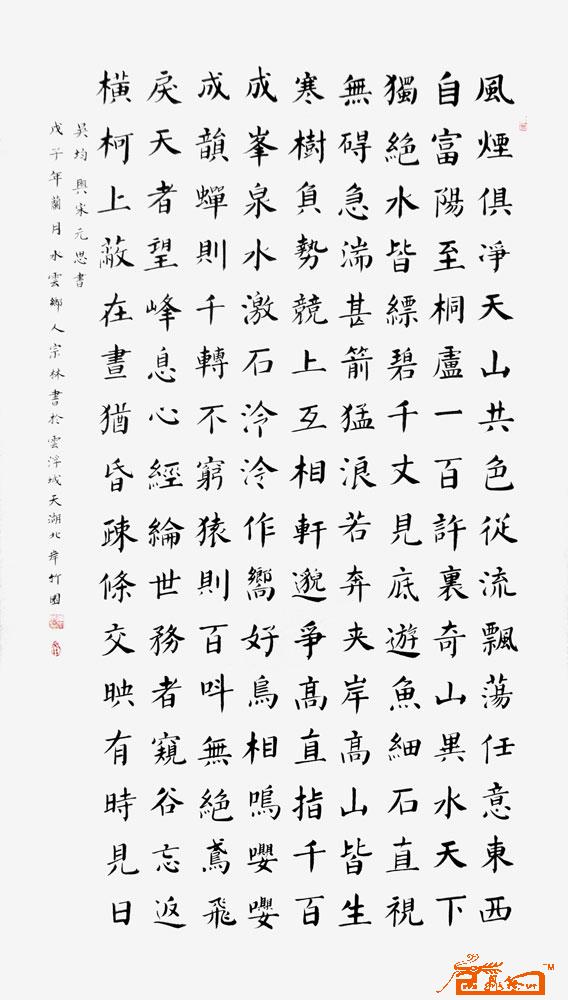 風煙俱淨天山共色從流飄蕩任意東西
自富陽至桐廬一百許裏奇山異水天下
獨絕水皆縹碧千丈見底遊魚細石直視
無碍急湍甚箭猛浪若奔夹岸高山皆生
寒樹負勢競上互相軒邈爭高直指千百
成峯泉水激石泠泠作嚮好鳥相鳴嚶嚶
成韻蟬則千轉不窮猿則百叫無絕鳶飛
戾天者望峰息心經綸世務者窺谷忘返
橫柯上蔽在晝猶昏疎條交映有時見日
吳均與宋元思書
戊子年蘭月水雲鄉人宗林書於雲浮城天湖北岸竹園
TM